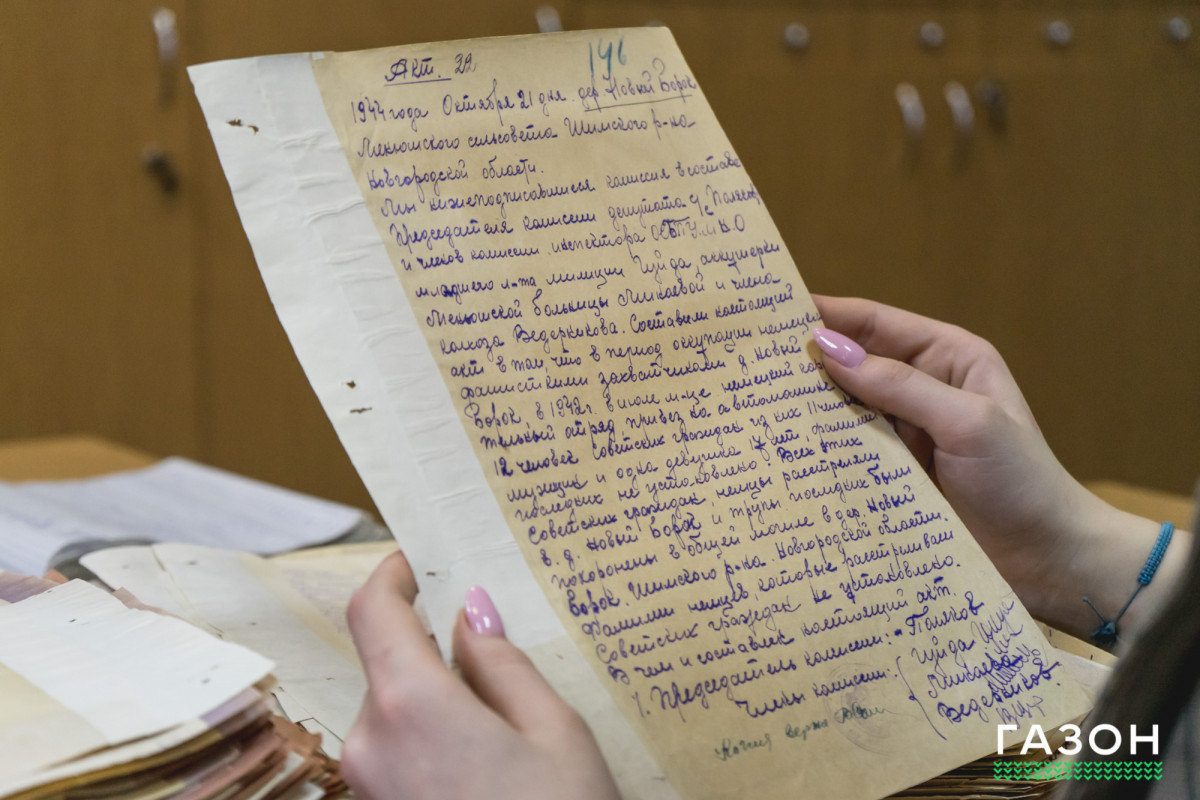 Акт. 22
146
1944 года Октября 21 дня дер. Новый Борок
Менюшского сельсовета Шимского р-на
Новгородской области.
Мы нижеподписавшиеся комиссия в составе
Председателя комиссии депутата с/с Полякова
и членов комиссии инспектора
младшего л-та милиции Гуйда, аккушерки
Менюшской больницы Минаевой и члена
колхоза Ведерникова. Составили настоящий
акт в том, что в период оккупации немецки
фашисткими захватчиками д. Новый
Борок, в 1942 г. в июле м-це немецкий кара
тельный отряд привез на автомашине
12 человек Советских граждан из них 11 человек
мужщин и одна девушка 7 лет, фамилии
последних не установлено. Всех этих
Советских граждан немцы расстреляли
в д. Новый Борок и трупы последних были
похоронены в общей могиле в дер. Новый
Борок. Шимского р-на. Новгородской области.
Фамилии немцев, которые расстреливали
Советских граждан не установлено.
В чем и составлен настоящий акт.
Председатель комиссии: - Поляков
Члены комиссии: Гуйда
Минаева
Ведерников.
Копия верна
ГАЗОН